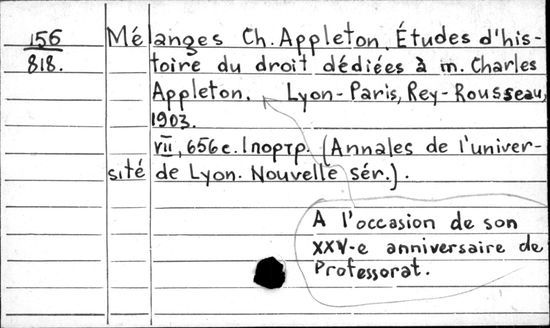 156
818.
Mélanges Ch. Appleton. Études d'his-
toire du droit dédiées à m. Charles
Appleton. Lyon-Paris, Rey-Rousseau,
1903.
VII, 656 с. 1 портр. (Annales de l'univer-
sité de Lyon. Nouvelle sér.).
A l'occasion de son
XXV-e anniversaire de
Professorat.